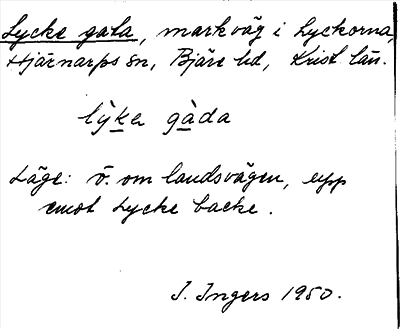 Lycke gata, markväg i Lyckorna,
Hjärnarps sn, Bjäre hd, Krist. län.
lỳkе gàda
Läge: ö. om landsvägen, upp
emot Lycke backe.
I. Ingers 1950.